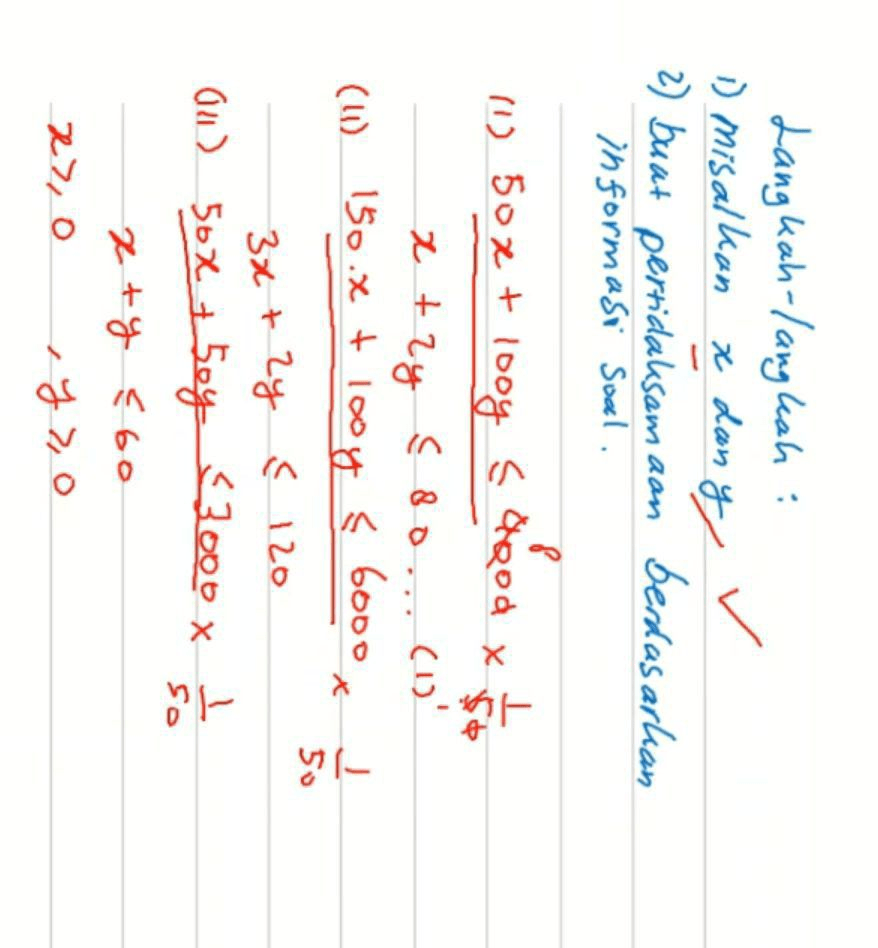 Langkah-langkah :
1) Misalkan x dan y
2) buat pertidaksamaan berdasarkan
informasi soal.
(i) 50x + 100y ≤ 4000 x 1/50
x + 2y ≤ 80 ... (1).
(ii) 150.x + 100y ≤ 6000 x 1/50
3x + 2y ≤ 120
(iii) 50x + 50y ≤ 3000 x 1/50
x + y ≤ 60
x ≥ 0 , y ≥ 0